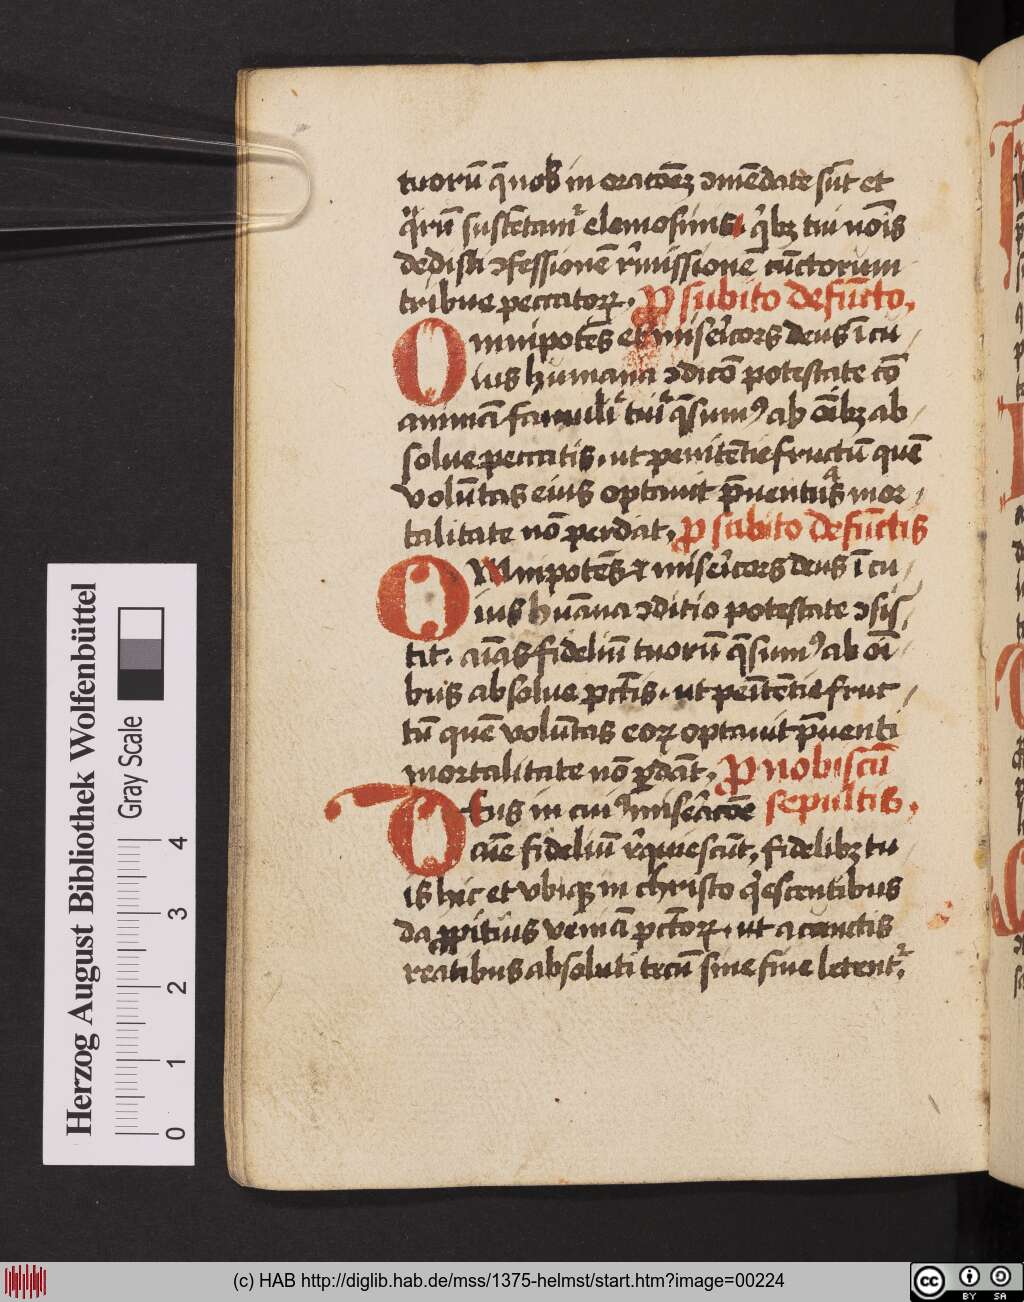 tuorū q̄ nob̄ in oracōēʒ ↄmēdate sūt et
q̊rū sustētam̄ʳ elemosinis. q̇bʒ tui nōis
dedisti ↄfessionē r̓missionē cūctorum
tribue peccatoꝝ. ꝓ subito defūcto.
Omnipotēs et miser̓cors deus ī cu-
ius humana ↄdicō potestate cō
animā famuli tui q̄sumꝰ ab oībʒ ab-
solue peccatis. ut penitētie fructū quē
volūtas eius optauit p̄uentus mor-
talitate nō perdat. ꝓ subito defūctis
OMnipotēs & miser̓cors deus ī cu-
ius hūana ↄditio potestate ↄsis-
tit. aīas fideliū tuorū q̄sumꝰ ab oī-
bus absolue pctīs. ut peītētie fruc-
tū quē volūtas eoꝝ optauit p̄uenti
mortalitate nō ꝑdāt. ꝓ nobiscū
DEus in cuiꝰ miser̓acōe sepultis.
aīe fidelīū r̓quiescūt, fidelibʒ tu-
is hic et vbiqꝫ in christo q̇escentibus
da ꝓpitius veniā pctōꝝ. ut a cunctis
reatibus absoluti tecū sine fine letentʳ.
Herzog August Bibliothek Wolfenbüttel
Gray Scale
0 1 2 3 4
(c) HAB http://diglib.hab.de/mss/1375-helmst/start.htm?image=00224
cc BY SA